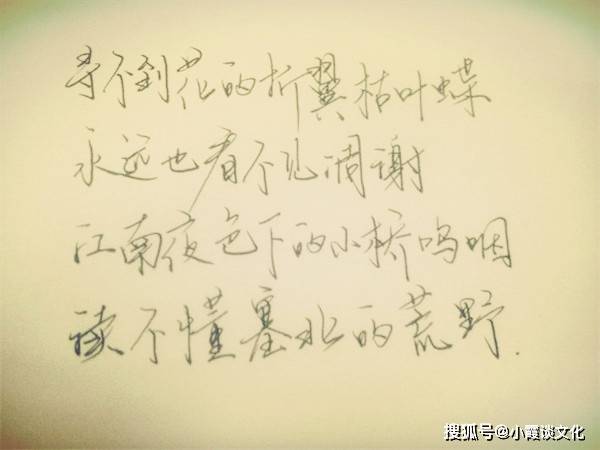 寻不到花的折翼枯叶蝶
永远也看不见凋谢
江南夜色下的小桥呜咽
读不懂塞北的荒野.
搜狐号@小霞谈文化